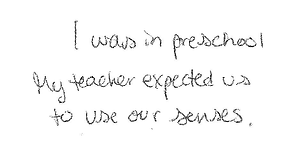 I was in preschool
My teacher expected us
to use our senses.